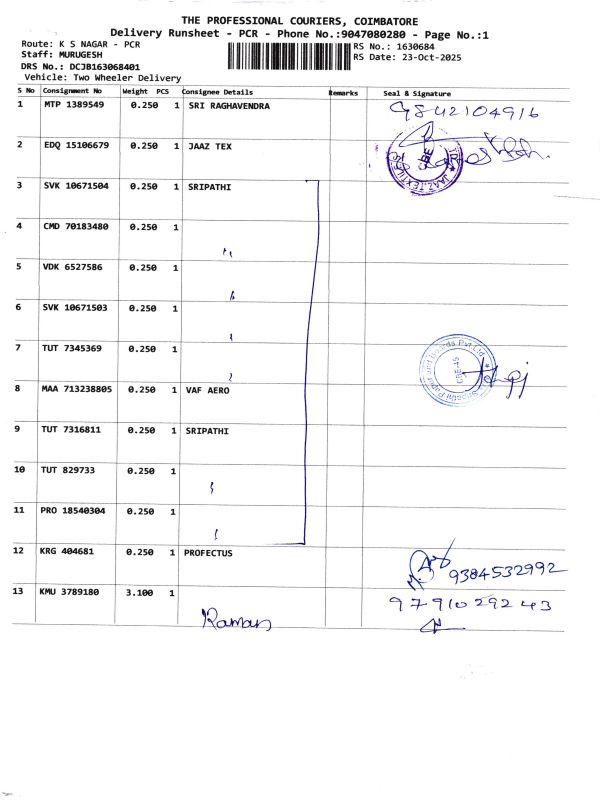 THE PROFESSIONAL COURIERS, COIMBATORE
Delivery Runsheet - PCR - Phone No.:9047080280 - Page No.:1
Route: K S NAGAR - PCR
RS No.: 1630684
Staff: MURUGESH
RS Date: 23-Oct-2025
DRS No.: DCJB163068401
Vehicle: Two Wheeler Delivery
S No Consignment No Weight PCS Consignee Details Remarks Seal & Signature
1 MTP 1389549 0.250 1 SRI RAGHAVENDRA 9842104916
2 EDQ 15106679 0.250 1 JAAZ TEX
3 SVK 10671504 0.250 1 SRIPATHI
4 CMD 70183480 0.250 1
5 VDK 6527586 0.250 1
6 SVK 10671503 0.250 1
7 TUT 7345369 0.250 1
8 MAA 713238805 0.250 1 VAF AERO
9 TUT 7316811 0.250 1 SRIPATHI
10 TUT 829733 0.250 1
11 PRO 18540304 0.250 1
12 KRG 404681 0.250 1 PROFECTUS 9384532992
13 KMU 3789180 3.100 1 Raman 9791029243